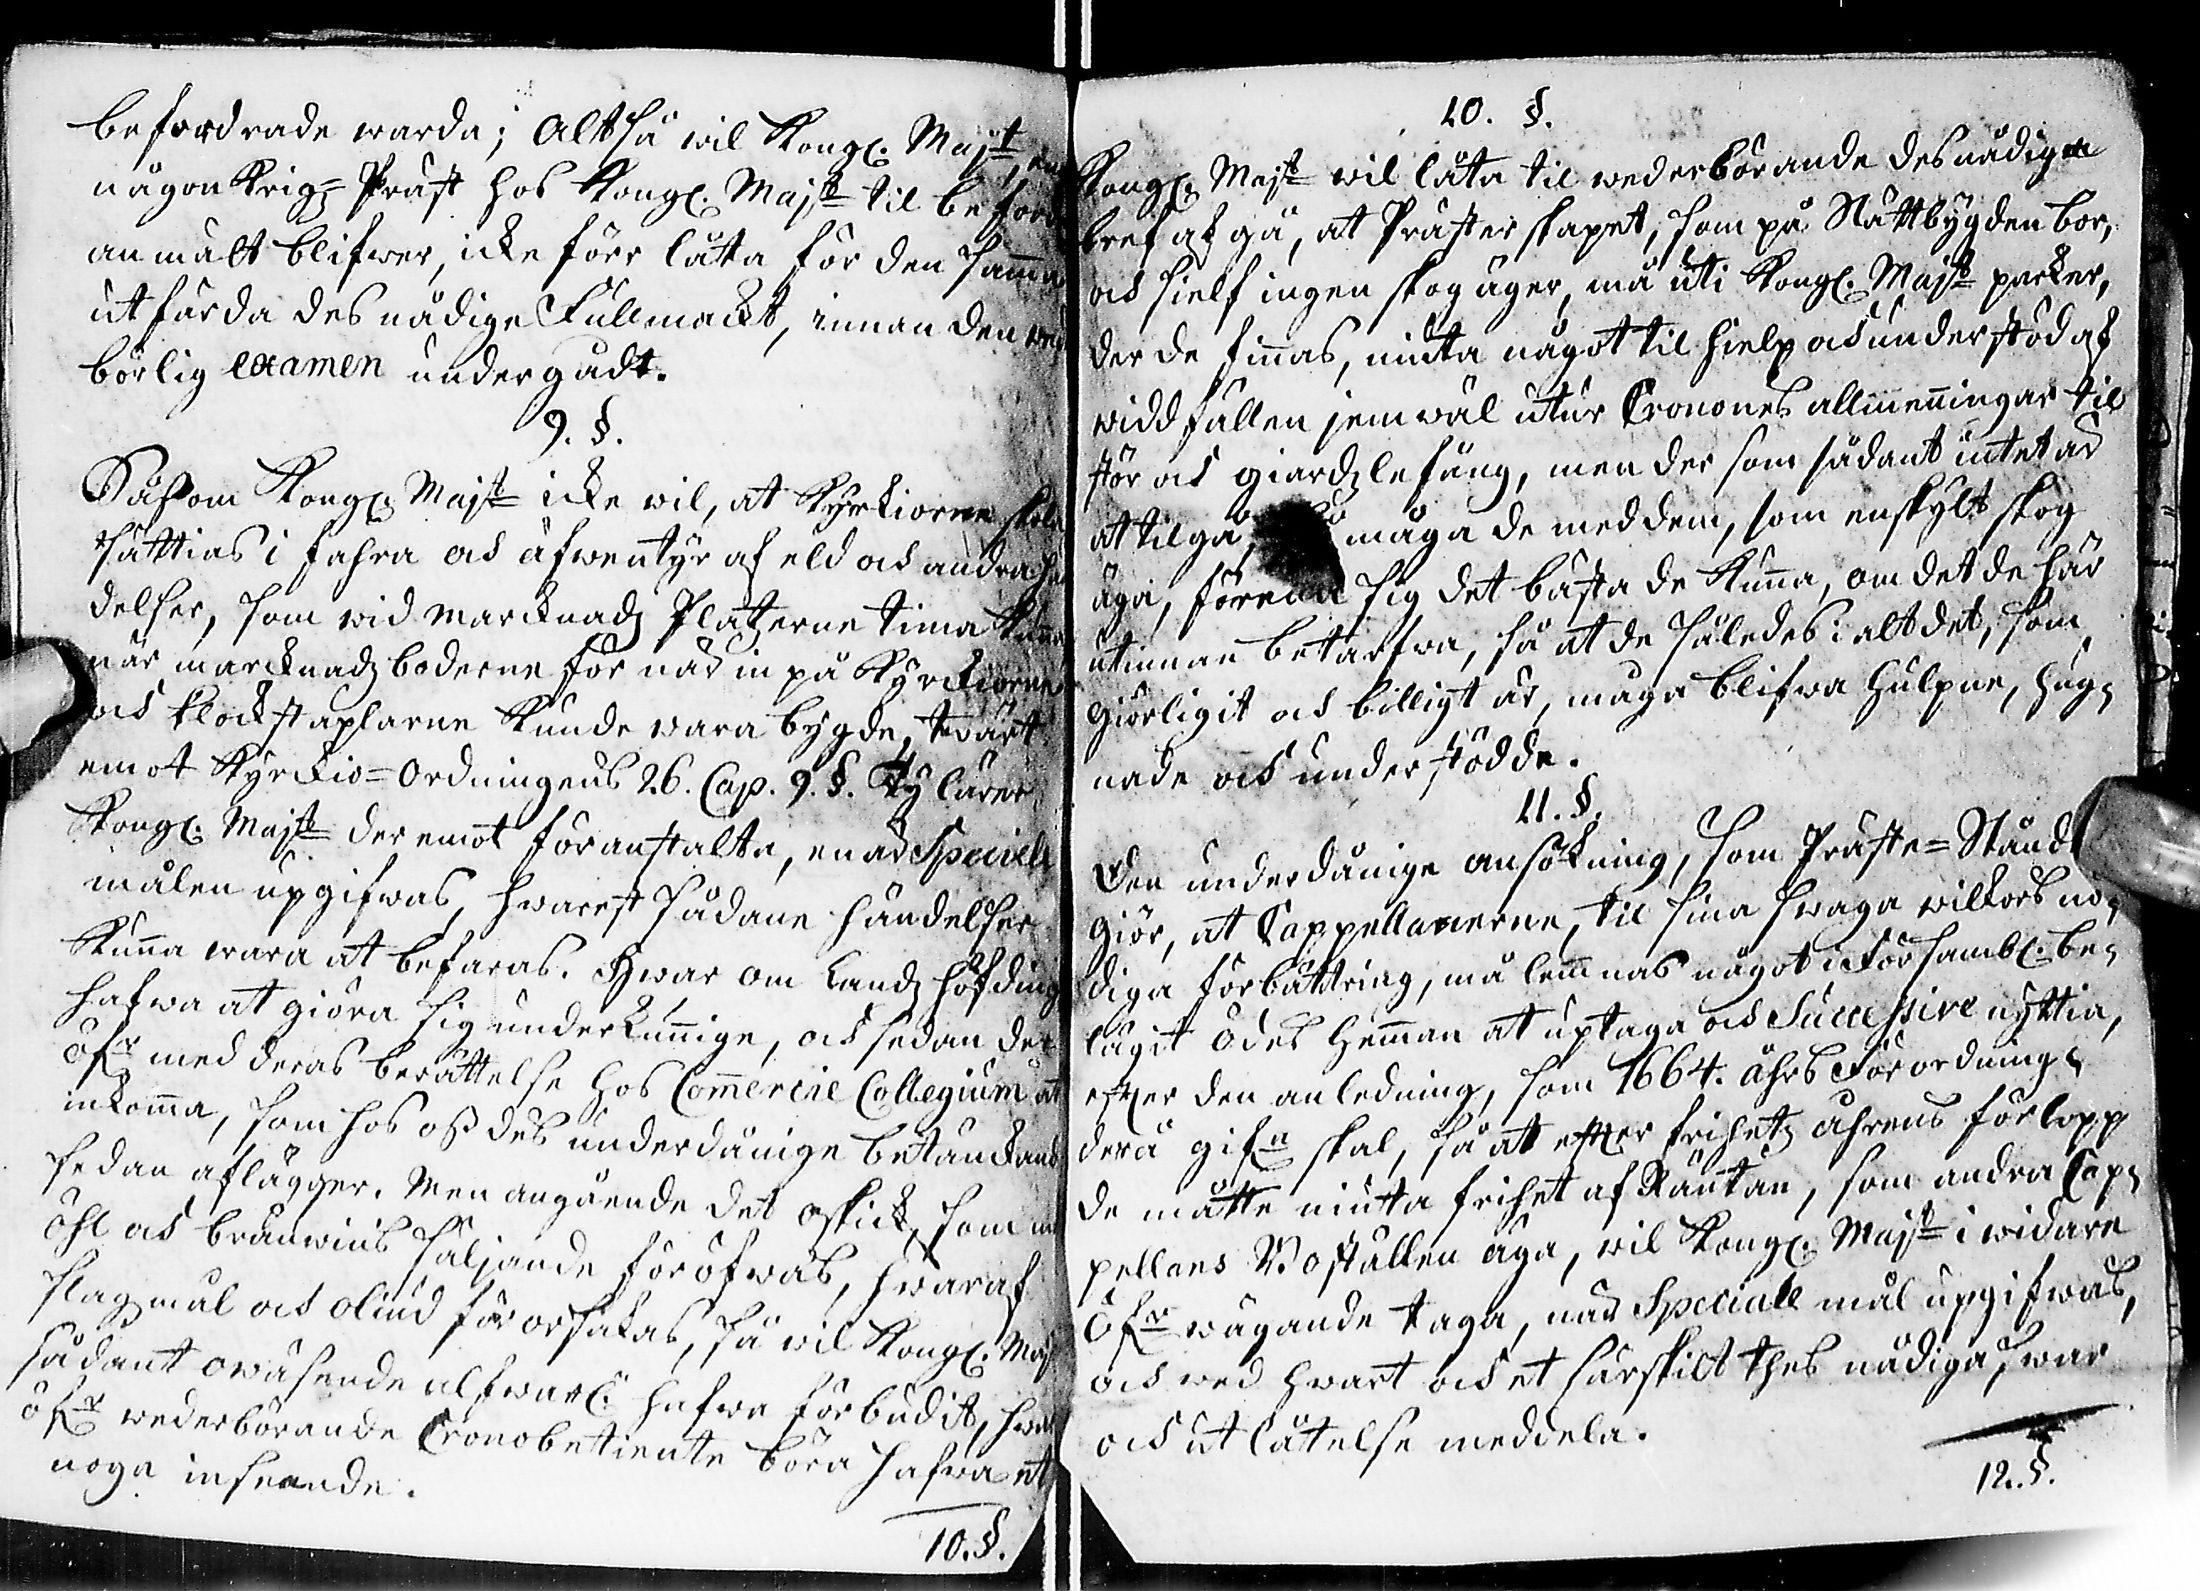 befordrade warda; Altså wil Kongl. Maijt, en
någon Krigz-Präst hos Kongl. Maijt til beford
anmält blifwer, icke förr låta för den samma
utfärda des nådige Fullmackt, innan den wed
börlig examen undergådt.
9. §.
Såsom Kongl. Maijt icke wil, at Kyrkiorne skola
sättias i fahra och äfwentyr af eld och andra hän
delser, som wid Marcknadz Platzerne tima kunna
när marcknadz boderne för när in på Kyrckiorne
och klockstaplarne kunde wara bygde, twärt
emot Kyrckio-Ordningens 26. Cap. 9. §. Ty lärer
Kongl. Maijt der emot föranstalta, enär Speciele
målen upgifwas, hwarest sådane händelser
kunna wara at befaras. Hwar om Landzhöfding
hafwa at giöra sig underkunnige, och sedan der
öfr med deras berättelse hos Commercie Collegium at
inkomma, som hos oß des underdånige betänckand
sedan aflägger. Men angående det oskick, som med
öhl och bränwins säljande föröfwas, hwaraf
slagzmål och oliud förorsakas, så wil Kongl. Maij
sådant owäsende alfwarl. hafwa förbudit, hwar
öfr wederbörande Cronobetiente böra hafwa et
noga inseende.
10. §.
10. §.
Kongl. Maijt wil låta til wederbörande des nådiga
bref afgå, at Prästerskapet, som på Slättbygden bor,
och sielf ingen skog äger, må uti Kongl. Maijt parcker,
der de finnas, niuta något til hielp och understöd af
widdfällen jemwäl utur Cronones allmenningar til
stör och giärdzlefång, men der som sådant intet är
at tilgå, måga de med dem, som enskylt skog
äga, förena sig det bästa de kunna, om det de här
utinnan betarfwa, så at de således i alt det, som
giörligit och billigt är, måga blifwa hulpne, hug-
nade och understödde.
11. §.
Den underdånige ansökning, som Präste-Ståndet
giör, at Cappellanerne, til sina swaga wilkors nö-
diga förbättring, må lemnas något i Försambl. be-
lägit Ödes Hemman at uptaga och Successive nyttia,
efter den anledning, som 1664. åhrs Förordning
derå gifn skal, så at efter frihetz åhrens förlopp
de måtte niuta frihet af Räntan, som andra Cap-
pellans Boställen äga, wil Kongl. Maijt i widare
Öfrwägande taga, när Speciale mål upgifwas,
och wed hwart och et särskilt thes nådiga swar
och utlåtelse meddela.
12. §.